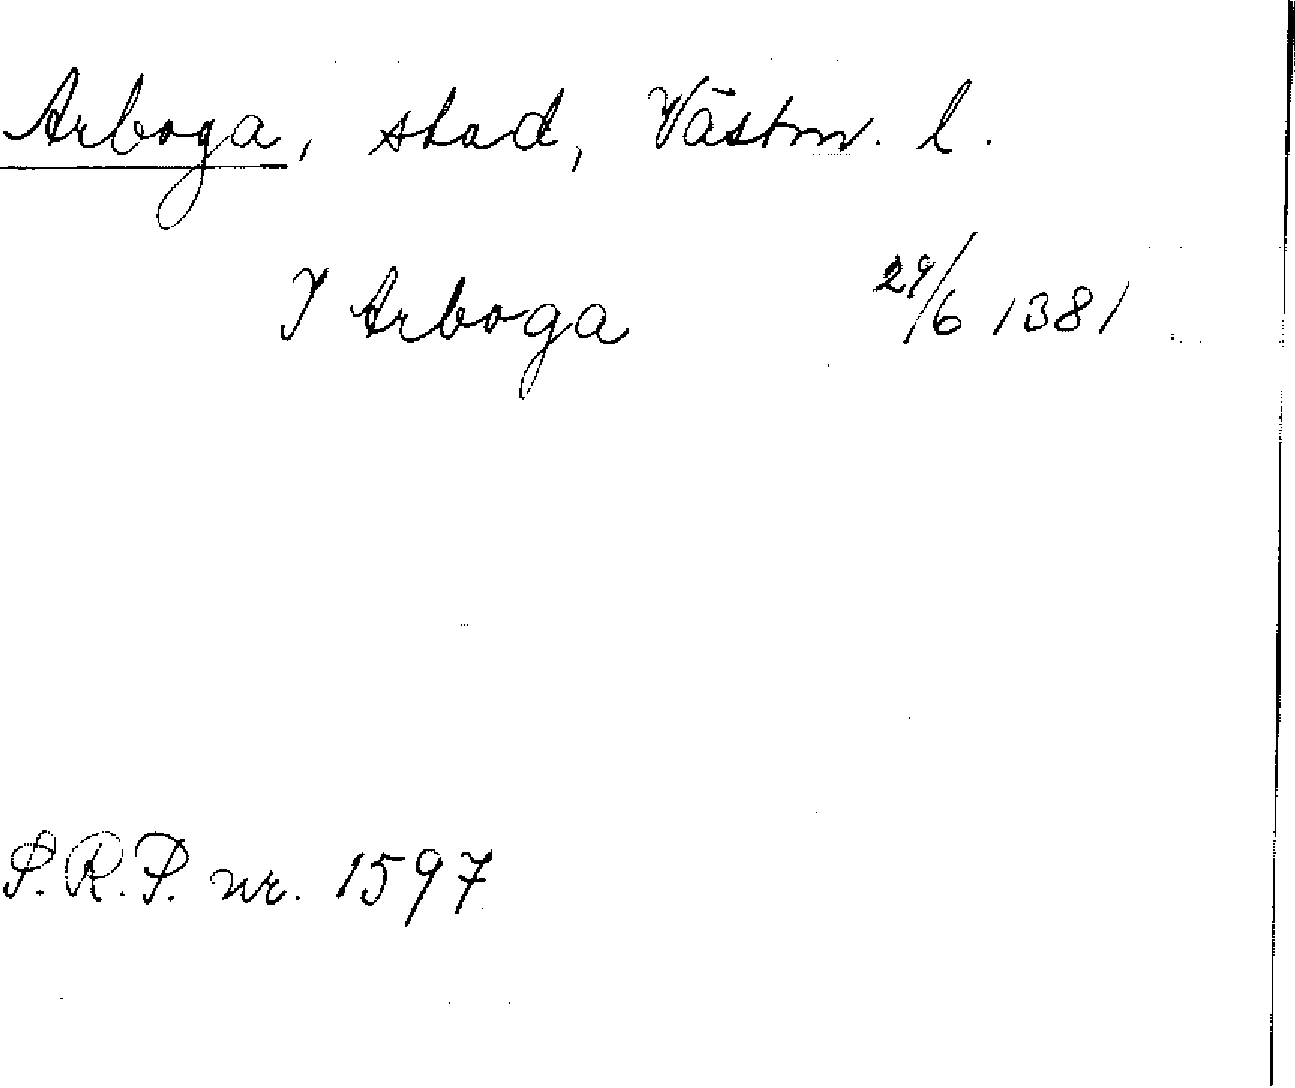 Arboga, stad, Västm. l.
I Arboga 29/6 1381
S.R.P. nr. 1597